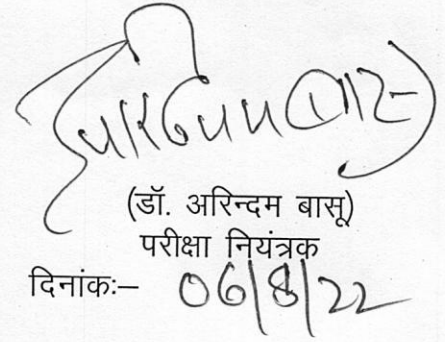 (डॉ. अरिन्दम बासू)
परीक्षा नियंत्रक
दिनांकः– 06/8/22